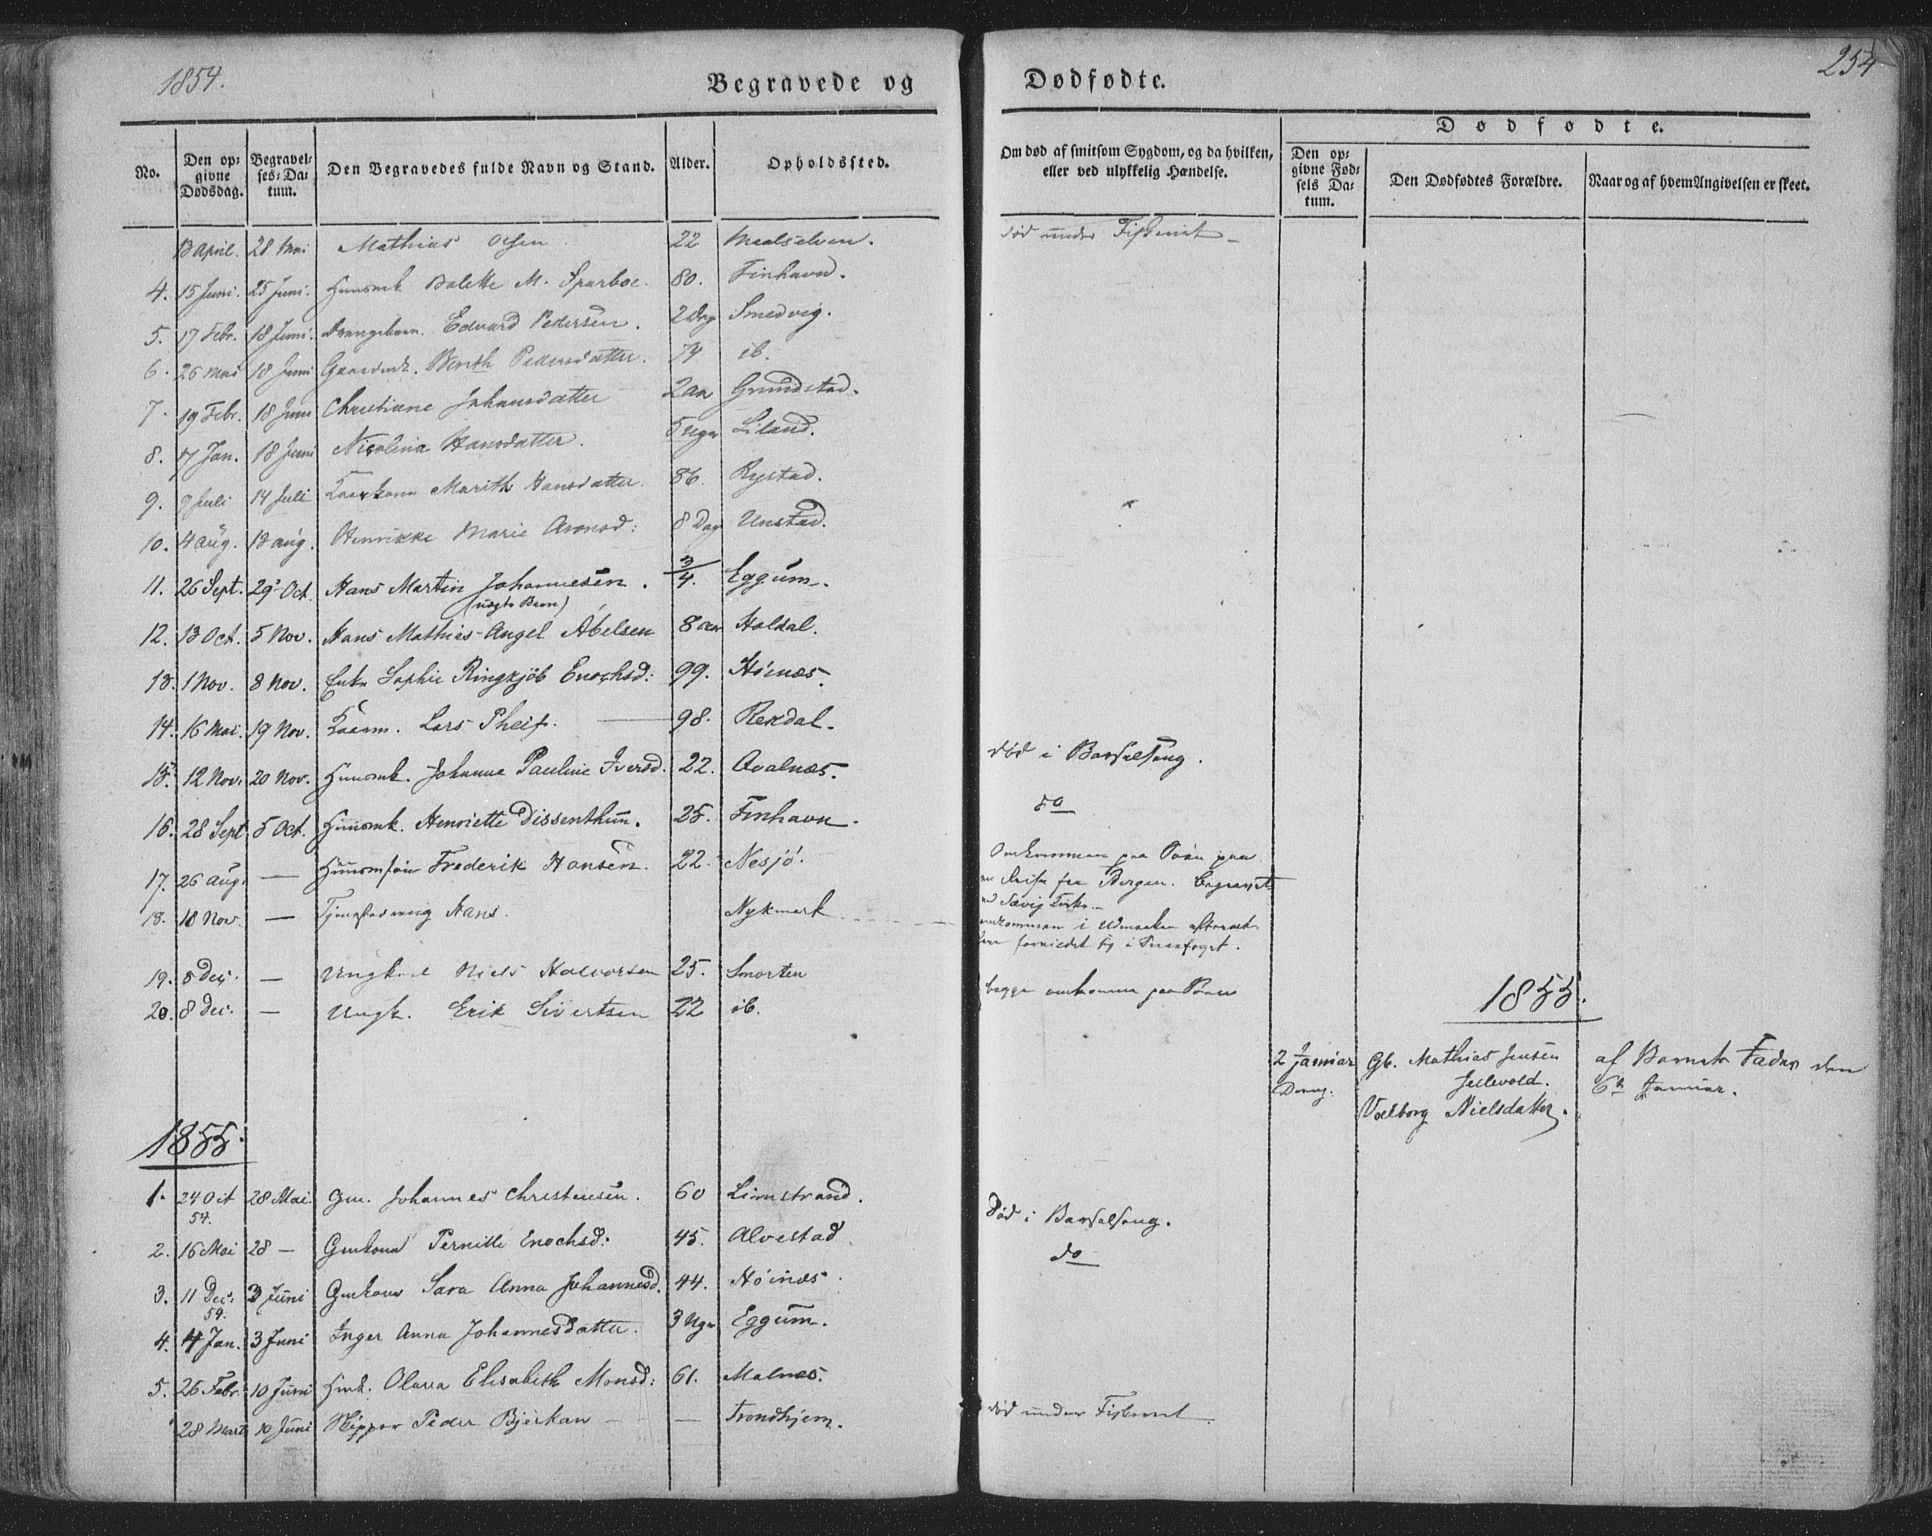 1854.
Begravede og Dødfødte.
254
No.
Den opgivne Dødsdag.
Begravelses-Datum.
Den Begravedes fulde Navn og Stand.
Alder.
Opholdssted.
Om død af smitsom Sygdom, og da hvilken, eller ved ulykkelig Hændelse.
Dødfødte.
Den opgivne Fødsels Datum.
Den Dødfødtes Forældre.
Naar og af hvem Angivelsen er skeet.
13 April. 28 Mai Mathias Olsen 22 Maalselven. død under Fiskeriet
4. 15 Juni. 25 Juni. Huusmk Bolette M. Sparboe. 80. Finhavn.
5. 17 Febr. 18 Juni. Drengebarn. Edvard Pedersen. 2 Dag Smedvig.
6. 26 Mai 18 Juni Berith Pedersdatter. 74 ib.
7. 19 Febr. 18 Juni Christiane Johansdatter 2 aar Grundstad.
8. 17 Jan. 18 Juni Nicolina Hansdatter. 5 Uger Liland.
9. 7 Juli 14 Juli Marith Hansdatter. 86. Rystad.
10. 4 Aug. 13 Aug. Henrikke Marie Aronsd: 8 Dag Unstad.
11. 26 Sept. 29 Oct. Hans Martin Johannesen. 3/4. Eggum.
(uægte Barn)
12. 13 Oct. 5 Nov. Hans Mathias Angel Abelsen 8 aar Haldal.
13. 1 Nov. 8 Nov. Enke Sophie Ringkjöb Enochsd: 99. Höinæs.
14. 16 Mai. 19 Nov. Kaarm. Lars Pheif. 98. Rekdal.
15. 12 Nov. 20 Nov. Huusmk. Johanna Pauline Iversd. 22. Qvalnæs. død i Barselseng.
16. 28 Sept 5 Oct. Huusmk. Henriette Dissenthun. 25. Finhavn. do
17. 26 Aug. — Frederik Hansen. 22. Nesjö. Omkommen paa Søen paa
en Reise fra Bergen. Begravet
ved Kirke.
18. 18 Nov — Hans. Nykmark omkommen i Udmarken
19. 8 Dec. — Ungkarl Niels Halvorsen 25. Smorten begge omkomne paa Søen
20. 8 Dec. — Ungk. Erik Sivertsen 22 ib.
1855.
2 Januar Gb. Mathias Jensen Jellevold. Valborg Nielsdatter. af Barnets Fader den 6te Januar.
Dreng.
1855.
1. 24 Oct 54. 28 Mai. Gm. Johannes Christensen. 60 Limstrand.
2. 16 Mai 28 — Gmkona Pernille Enochsd: 45. Alvestad. Død i Barselseng.
3. 11 Dec. 54. 3 Juni Gmkona Sara Anna Johannesd. 44. Höinæs. do
4. 4 Jan. 3 Juni Inger Anna Johannesdatter. 3 Uger Eggum.
5. 26 Febr. 10 Juni Hmk. Olava Elisabeth Monsd: 61. Malnæs.
28 Marts 10 Juni Peder Bjerkan — — Trondhjem. død under Fiskeriet